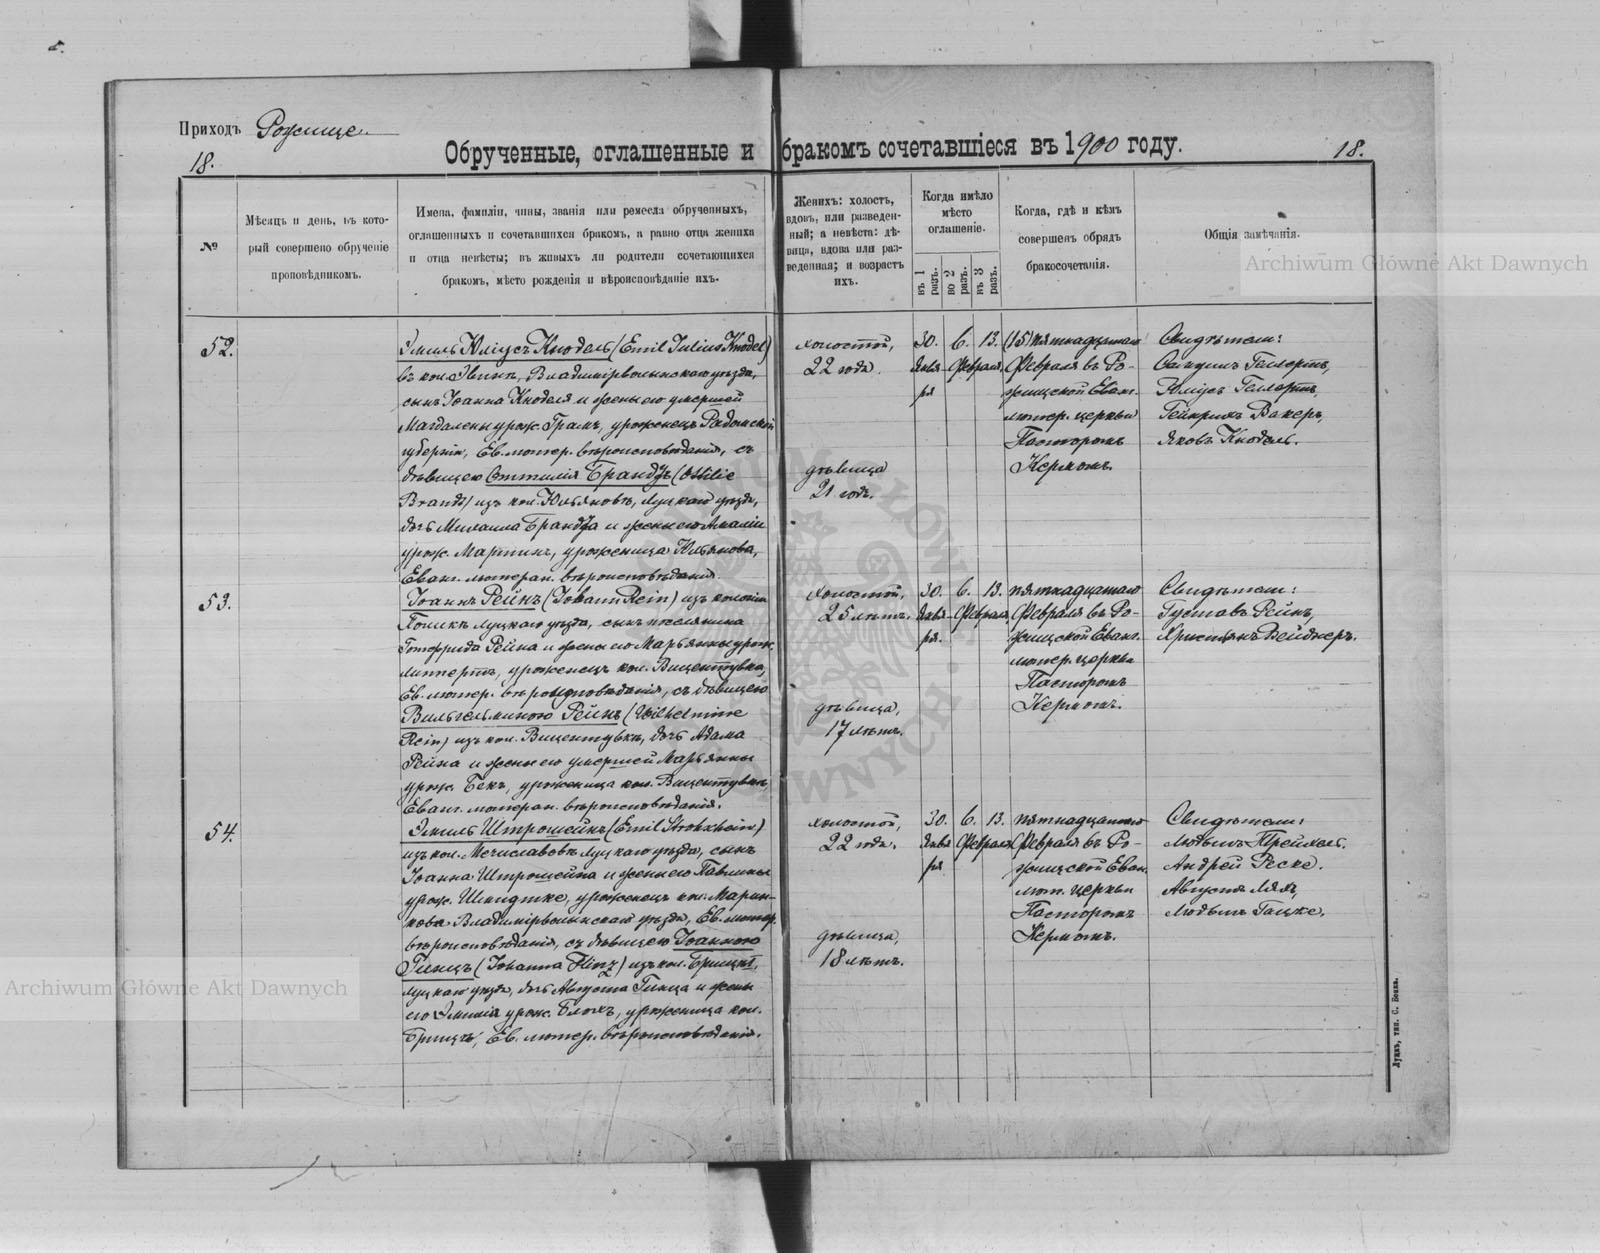 Приходъ Рожище
18.
Обрученные, оглашенные и бракомъ сочетавшіеся въ 1900 году.
18.
№
Мѣсяцъ и день, въ кото-
рый совершено обрученіе
проповѣдникомъ.
Имена, фамиліи, чины, званія или ремесла обрученныхъ,
оглашенныхъ и сочетавшихся бракомъ, а равно отца жениха
и отца невѣсты; въ живыхъ ли родители сочетающихся
бракомъ, мѣсто рожденія и вѣроисповѣданіе ихъ.
Женихъ: холостъ,
вдовъ, или разведен-
ный; а невѣста: дѣ-
вица, вдова или раз-
веденная; и возрастъ
ихъ.
Когда имѣло
мѣсто
оглашеніе.
въ 1 разъ.
во 2 разъ.
въ 3 разъ.
Когда, гдѣ и кѣмъ
совершенъ обрядъ
бракосочетанія.
Общія замѣчанія.
52.
Эмиль Юліусъ Кнодель (Emil Julius Knodel)
въ кол. Владимірволынскаго уѣзда,
сынъ Іоанна Кноделя и жены его умершей
Магдалены урож. Грамъ, уроженецъ Радомской
губерніи, Ев. лютер. вѣроисповѣданія, съ
дѣвицею Оттилія Брандтъ (Ottilie
Brandt) изъ кол. Юльяновъ, Луцкаго уѣзда,
дочь Михаила Брандта и жены его Амаліи
урож. Мартинъ, уроженица Юльянова,
Еванг. лютеран. вѣроисповѣданія.
холостой,
22 года.
дѣвица
21 годъ.
30. 6. 13.
Янва- Февраля
ря
(15) пятнадцатаго
Февраля въ Ро-
жищской Еванг.
лютер. церкви
Пасторомъ
Кермомъ.
Свидѣтели:
Гелгортъ,
Юліусъ Гелгортъ,
Гейнрихъ Вакеръ,
Яковъ Кнодель.
53.
Іоаннъ Рейнъ (Johann Rein) изъ колоніи
Луцкаго уѣзда, сынъ поселянина
Готфрида Рейна и жены его Марьянны урож.
Липпертъ, уроженецъ кол. Вицентувка,
Ев. лютер. вѣроисповѣданія, съ дѣвицею
Вильгельминою Рейнъ (Wilhelmine
Rein) изъ кол. Вицентувка, дочь Адама
Рейна и жены его умершей Марьянны
урож. Бекъ, уроженица кол. Вицентувка,
Еванг. лютеран. вѣроисповѣданія.
холостой,
25 лѣтъ.
дѣвица,
17 лѣтъ.
30. 6. 13.
Янва- Февраля
ря.
пятнадцатаго
Февраля въ Ро-
жищской Еванг.
лютер. церкви
Пасторомъ
Кермомъ.
Свидѣтели:
Густавъ Рейнъ,
Христьянъ Вейднеръ.
54.
Эмиль Штрошейнъ (Emil Strohschein)
изъ кол. Мечиславовъ Луцкаго уѣзда, сынъ
Іоанна Штрошейна и жены его Павлины
урож. Шмидтке, уроженецъ кол. Марин-
кова Владимірволынскаго уѣзда, Ев. лютер.
вѣроисповѣданія, съ дѣвицею Іоанною
Гинцъ (Johanna Hinz) изъ кол. Брищъ,
Луцкаго уѣзда, дочь Августа Гинца и жены
его Эмиліи урож. Блокъ, уроженица кол.
Брищъ, Ев. лютер. вѣроисповѣданія.
холостой,
22 года.
дѣвица,
18 лѣтъ.
30. 6. 13.
Янва- Февраля
ря
пятнадцатаго
Февраля въ Ро-
жищской Еван.
лют. церкви
Пасторомъ
Кермомъ.
Свидѣтели:
Людвигъ Трейхель.
Андрей Реске.
Августъ
Людвигъ Гацке.
Луцкъ, тип. С. Бонка.
Archiwum Główne Akt Dawnych
Archiwum Główne Akt Dawnych